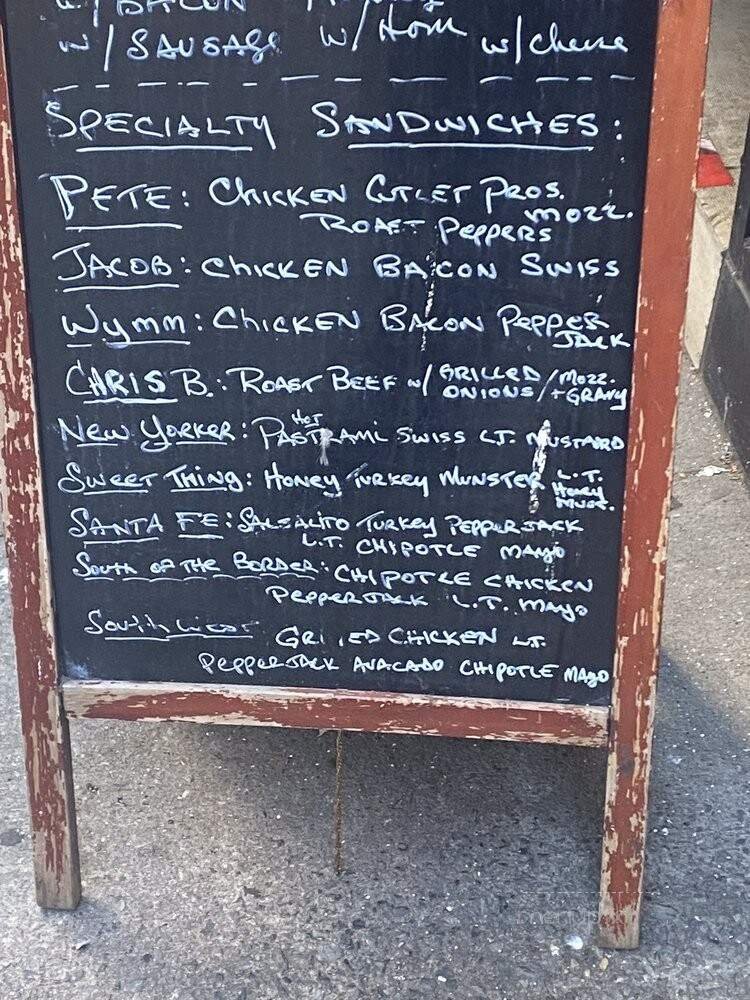 w/ BACON
w/ SAUSAGE w/ Ham w/ cheese
SPECIALTY SANDWICHES:
PETE: CHICKEN CUTLET PROS.
MOZZ.
ROAST PEPPERS
JACOB: CHICKEN BACON SWISS
Wymm: CHICKEN BACON PEPPER
JACK
CHRIS B.: ROAST BEEF w/ GRILLED / MOZZ.
ONIONS / + GRAVY
HOT
NEW YORKER: PASTRAMI SWISS L.T. MUSTARD
SWEET THING: HONEY TURKEY MUNSTER L.T.
HONEY
MUST.
SANTA FE: SALSALITO TURKEY PEPPERJACK
L.T. CHIPOTLE MAYO
SOUTH OF THE BORDER: CHIPOTLE CHICKEN
PEPPERJACK L.T. MAYO
SouthWest GRILLED CHICKEN L.T.
PEPPERJACK AVACADO CHIPOTLE MAYO